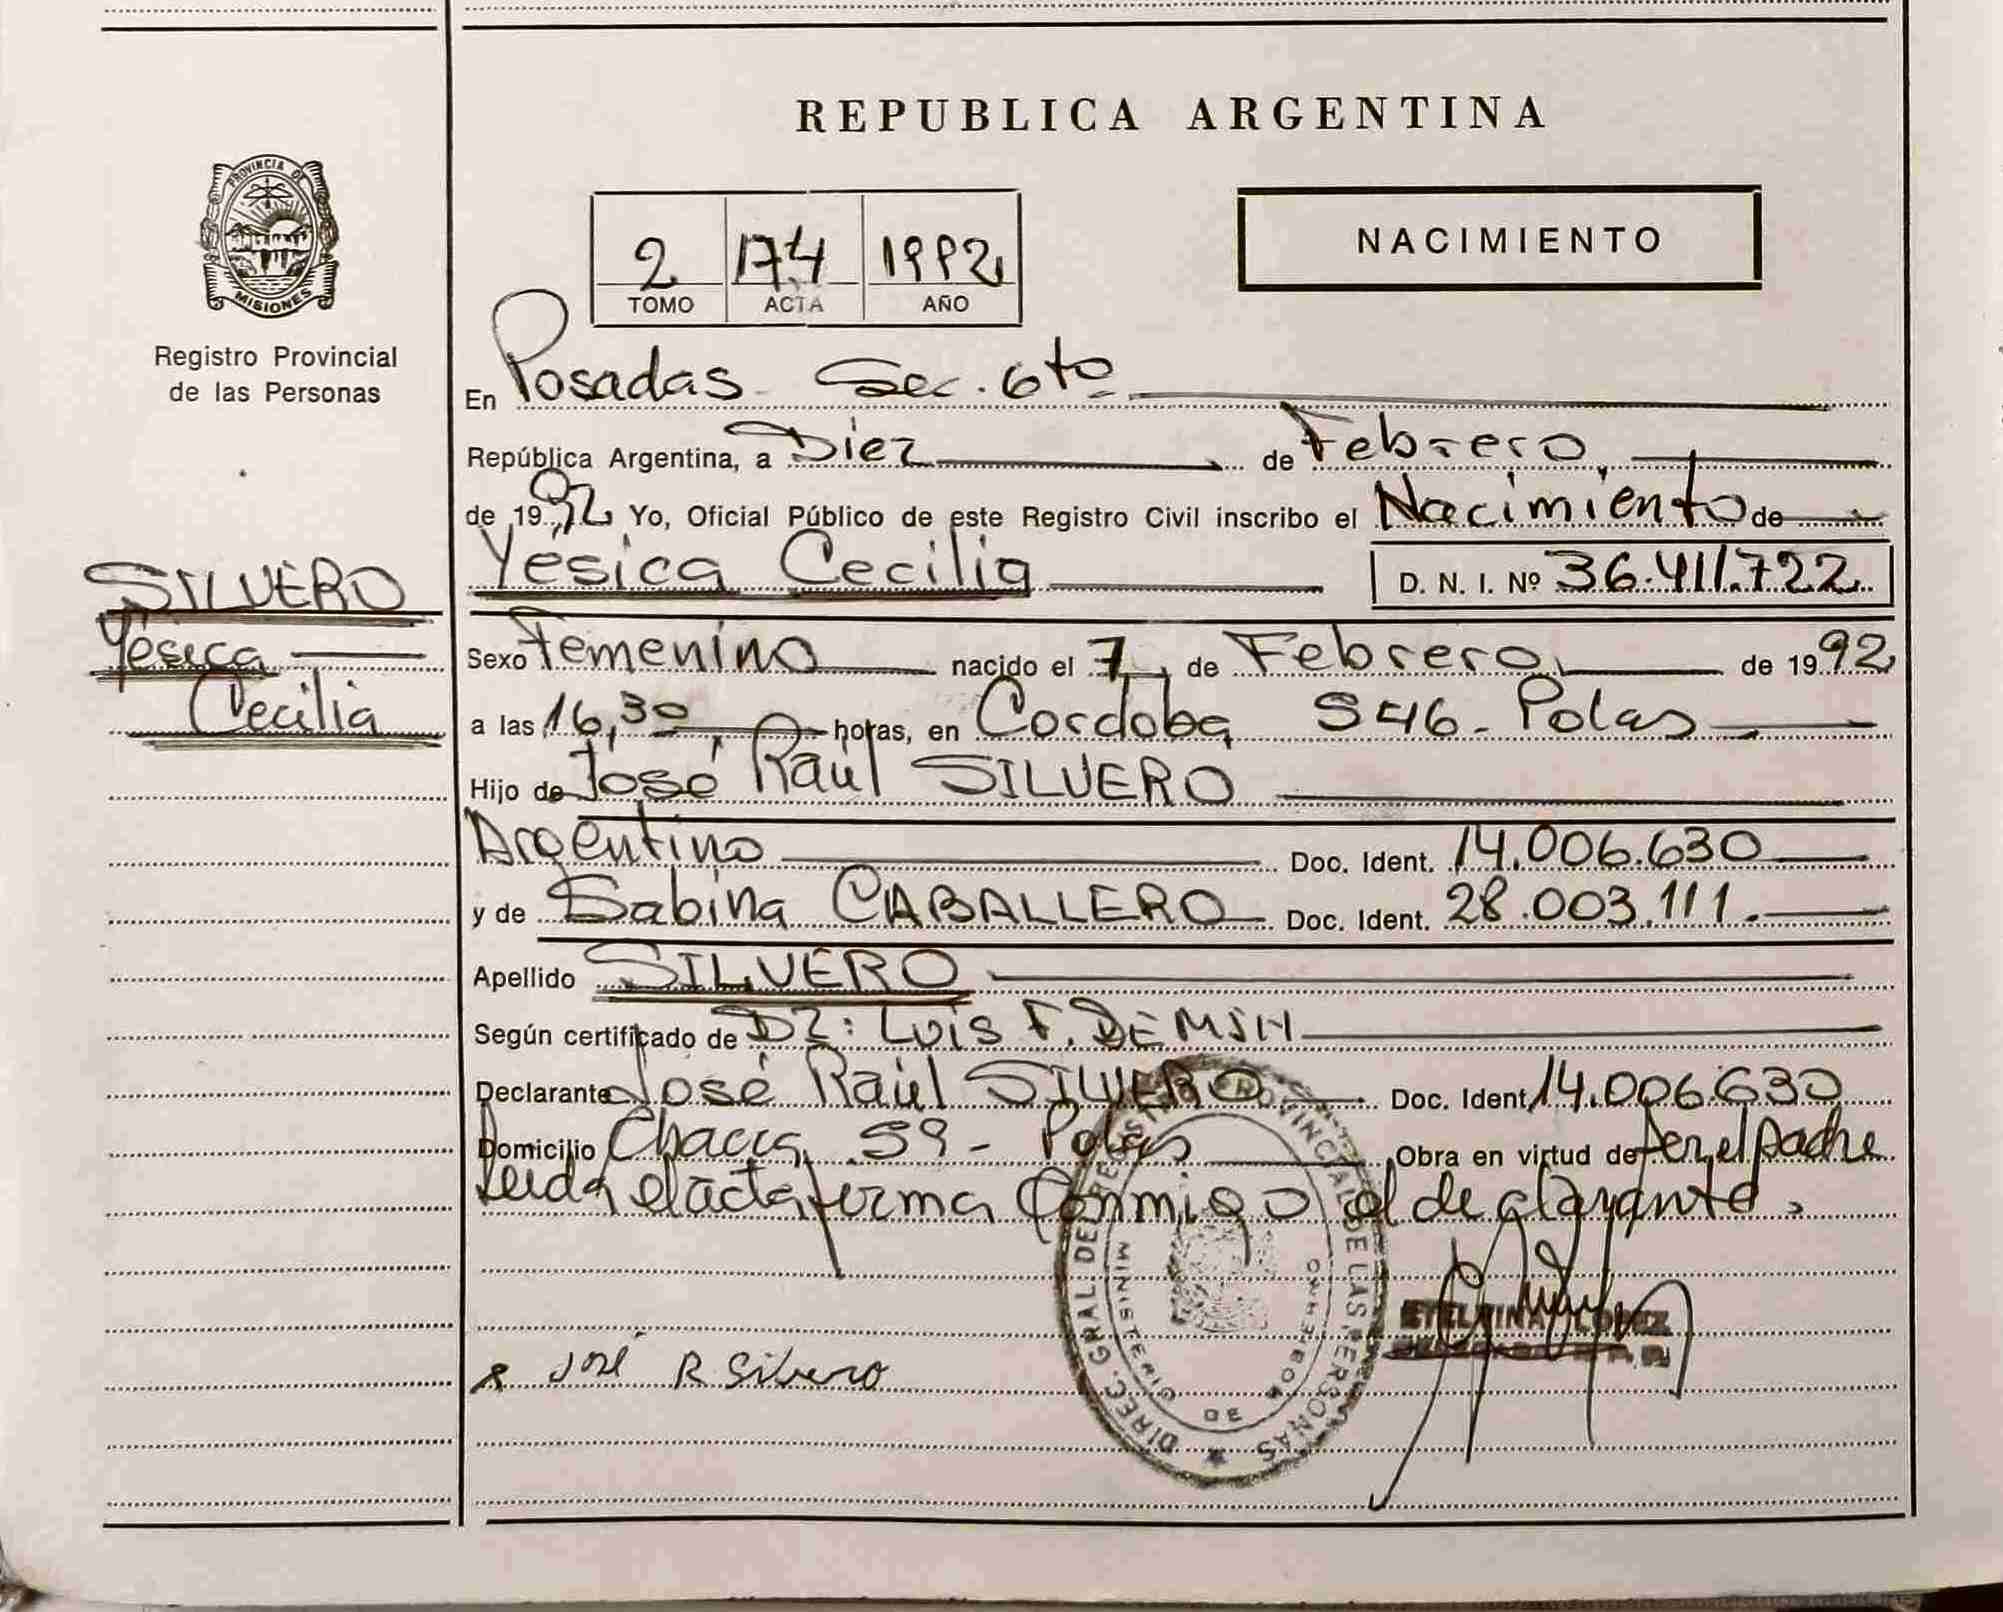 REPUBLICA ARGENTINA
PROVINCIA DE
MISIONES
Registro Provincial
de las Personas
2 174 1992
TOMO ACTA AÑO
NACIMIENTO
En Posadas Sec. 6to
República Argentina, a Diez de Febrero,
de 1992 Yo, Oficial Público de este Registro Civil inscribo el Nacimiento de
Yésica Cecilia D. N. I. Nº 36.411.722
SILVERO
Yésica
Cecilia
Sexo Femenino nacido el 7, de Febrero de 1992
a las 16,30 horas, en Cordoba 546 - Pdas
Hijo de José Raúl SILVERO
Argentino Doc. Ident. 14.006.630
y de Sabina CABALLERO Doc. Ident. 28.003.111.
Apellido SILVERO
Según certificado de Dr: Luis F. DEMSH
Declarante José Raúl SILVERO Doc. Ident 14.006.630
Domicilio Chacra 59 - Pdas Obra en virtud de ser el padre
Leida el acta firma conmigo el declarante.
José R Silvero
DIREC. GRAL DE REGISTRO PROVINCIAL DE LAS PERSONAS
MINISTERIO DE GOBIERNO